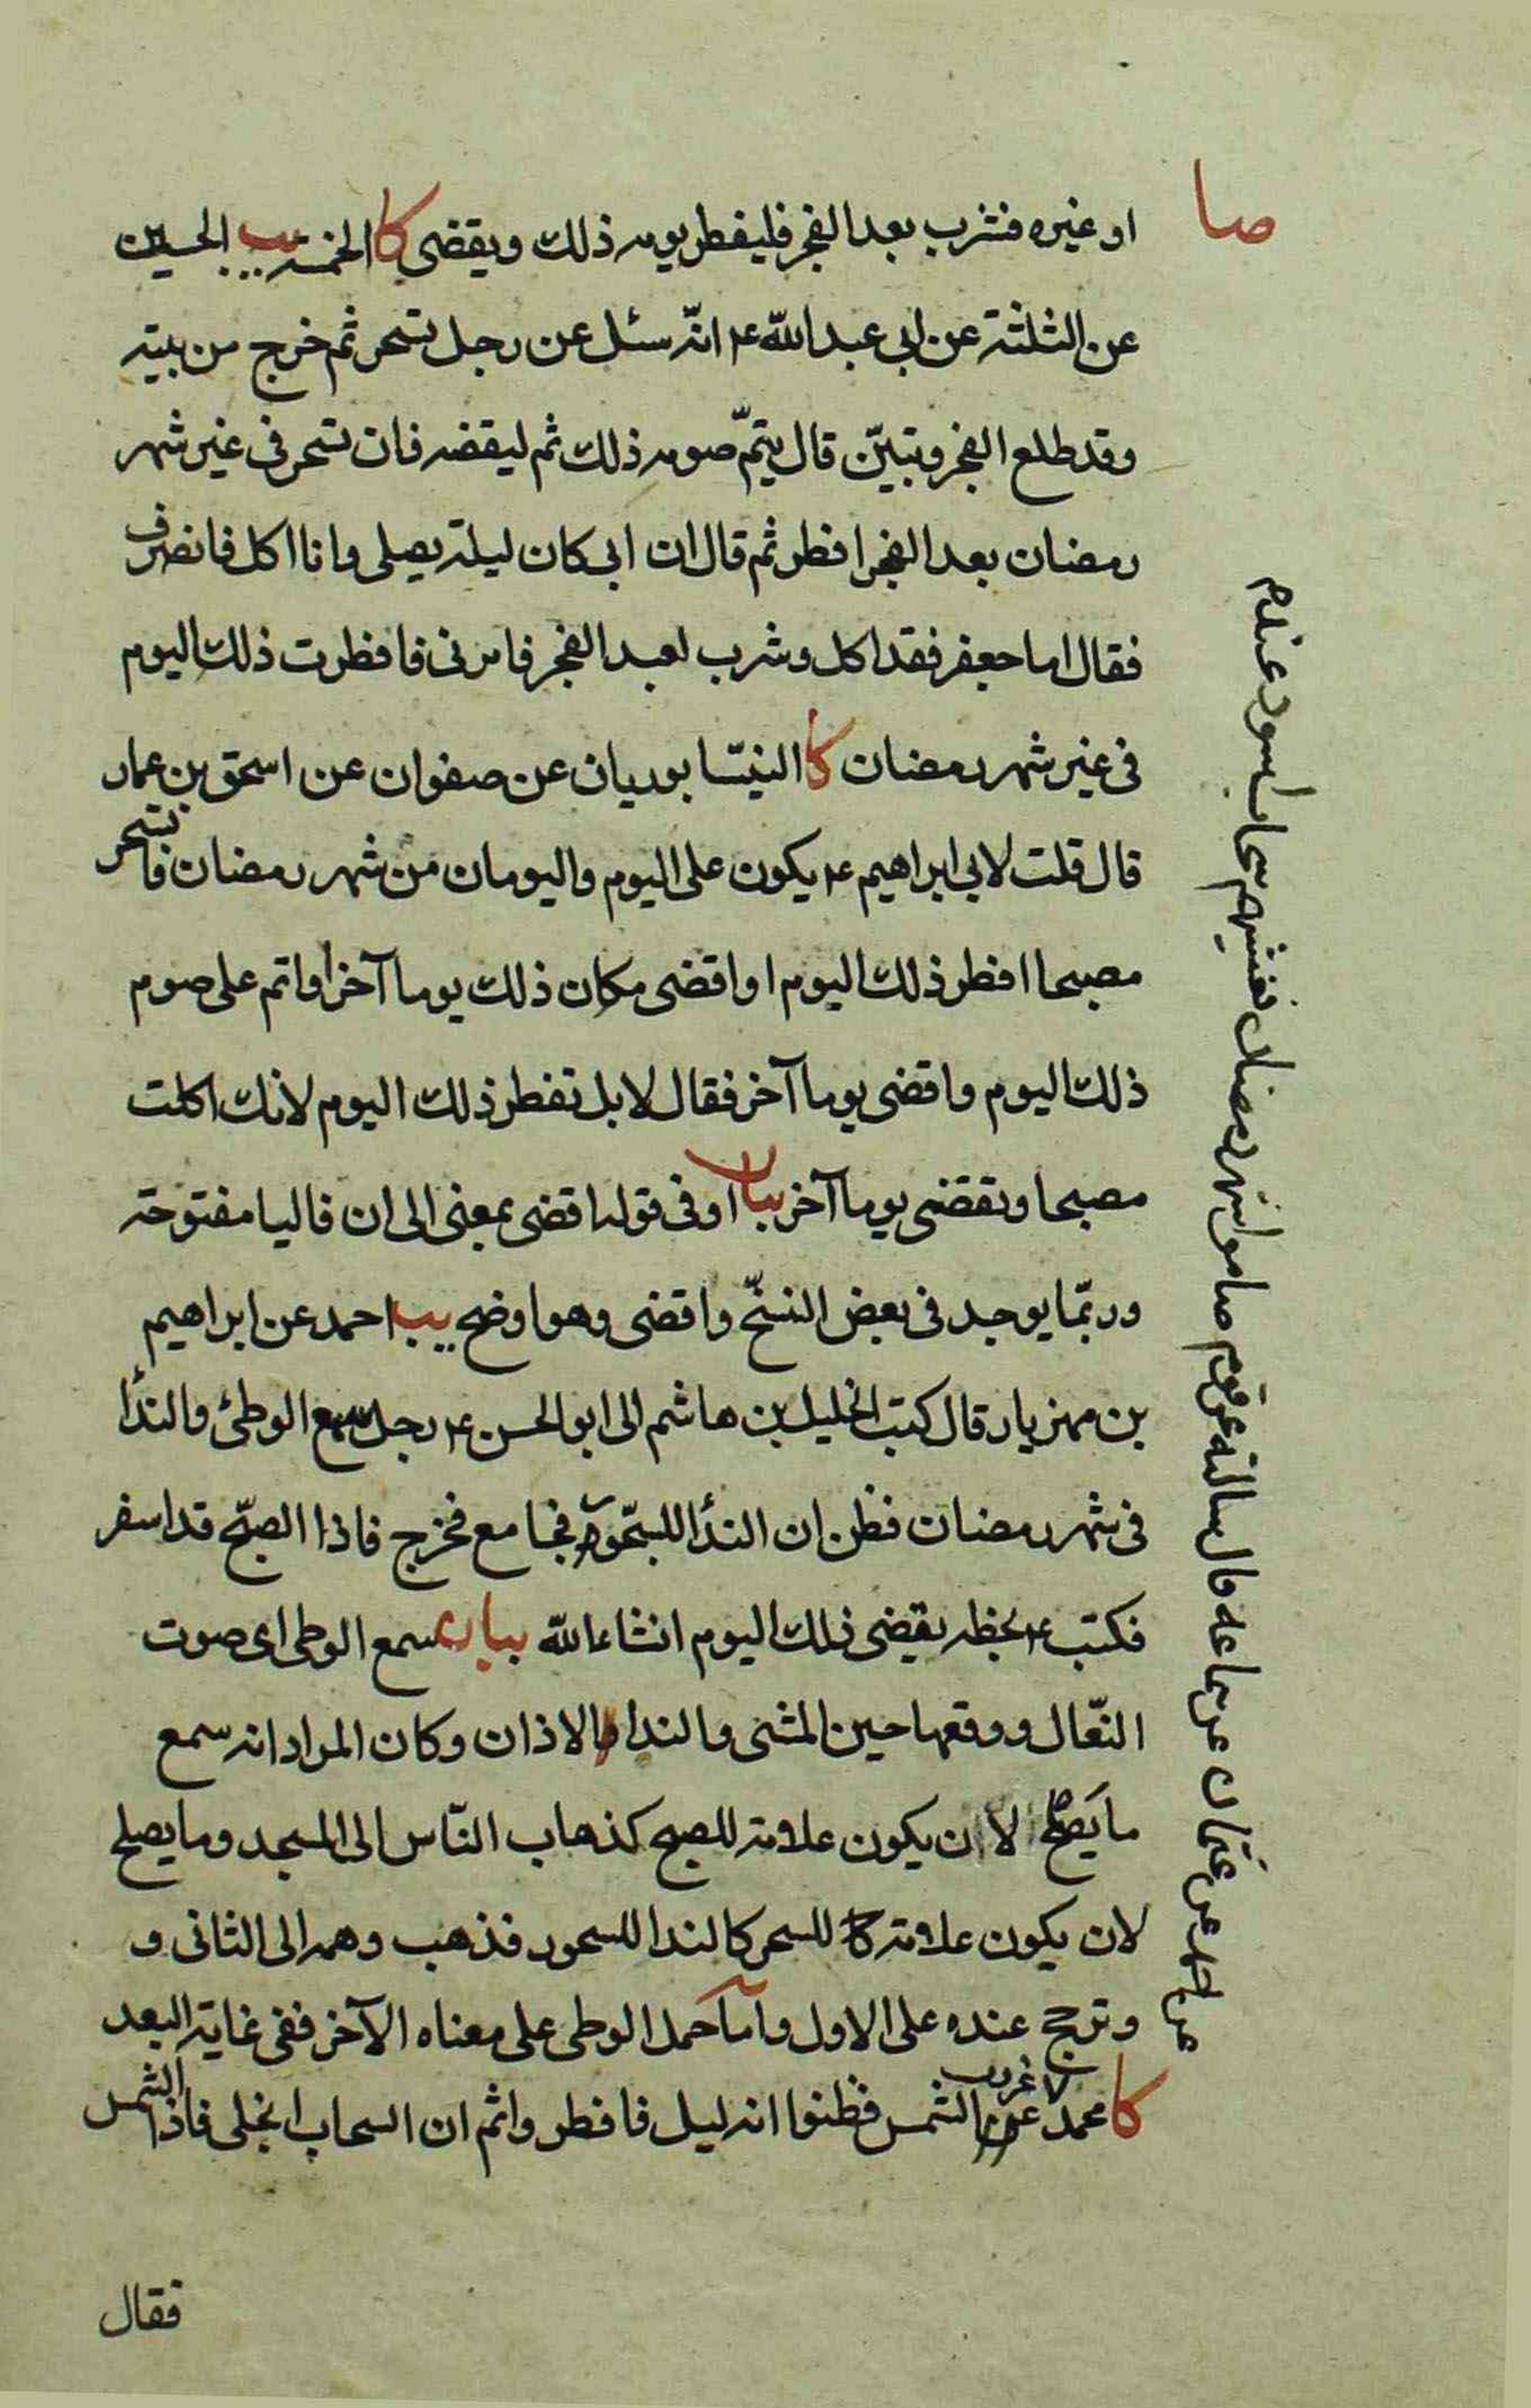 صا
او غيره فشرب بعد الفجر فليفطر يومه ذلك ويقضى كا الخمسة يب الحسين
عن الثلثة عن ابى عبد الله ع انّه سئل عن رجل تسحر ثم خرج من بيته
وقد طلع الفجر وتبيّن قال يتمّ صومه ذلك ثم ليقضه فان تسحر فى غير شهر
رمضان بعد الفجر افطر ثم قال ان ابى كان ليلة يصلى وانا اكل فانصرف
فقال اما جعفر فقد اكل وشرب بعد الفجر فامرنى فافطرت ذلك اليوم
فى غير شهر رمضان كا النيسّابوريان عن صفوان عن اسحق بن عمار
قال قلت لابى ابراهيم ع يكون على اليوم واليومان من شهر رمضان فاتسحر
مصبحا افطر ذلك اليوم او اقضى مكان ذلك يوما آخر او اتم على صوم
ذلك اليوم واقضى يوما آخر فقال لا بل تفطر ذلك اليوم لانك اكلت
مصبحا وتقضى يوما آخر بيان او فى قوله اقضى بمعنى الى ان فاليا مفتوحة
وربّما يوجد فى بعض النسّخ واقضى وهو اوضح يب احمد عن ابراهيم
بن مهزيار قال كتب الخليل بن هاشم الى ابو الحسن ع رجل سمع الوطئ والندأ
فى شهر رمضان فظن ان الندأ للسحّور فجامع فخرج فاذا الصبّح قد اسفر
فكتب ع بخطه يقضى ذلك اليوم انشاء الله بيان سمع الوطى اى صوت
النّعال ووقعها حين المشى والندا الاذان وكان المراد انه سمع
ما يَصلح لان يكون علامة للصبح كذهاب النّاس الى المسجد وما يصلح
لان يكون علامة للسحر كالندا للسحور فذهب وهمه الى الثانى و
وترجح عنده على الاول وامآ حمل الوطى على معناه الآخر ففى غاية البعد
كا محمد غروب الشمس فظنوا انه ليل فافطروا ثم ان السحاب انجلى فاذا الشمس
عن احمد عن عثمان عن سماعه قال سالته عن قوم صاموا شهر رمضان فغشيهم سحاب اسود عند
فقال